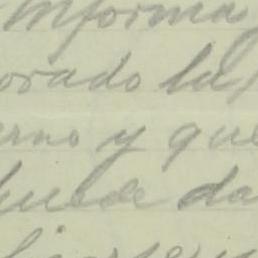 informa
orado la
erno y que
puede da